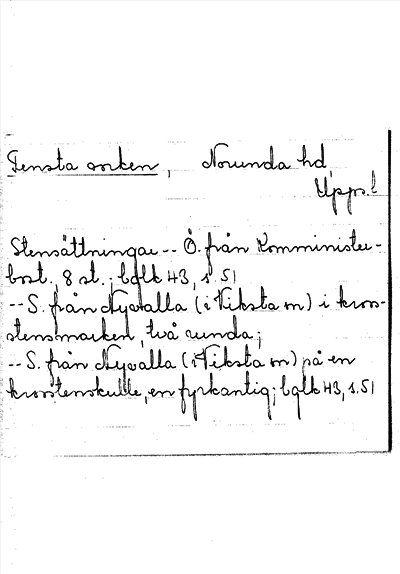 Tensta socken, Norunda hd,
Uppsl
Stensättningar -- Ö. från Komminister-
bost., 8 st.; bglk 43, s 51
-- S. från Nyvalla (i Viksta sn) i kross-
stensmarken, två runda;
-- S. från Nyvalla (i Viksta sn) på en
krosstenskulle, en fyrkantig; bglk 43, s. 51